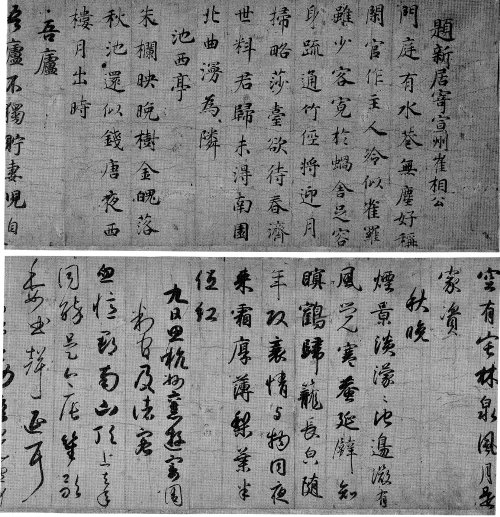 題新居寄宣州崔相公
門庭有水巷無塵好稱
閑官作主人冷似雀羅
雖少客寬於蝸舍足容
身疏通竹徑將迎月
掃略莎臺欲待春濟
世料君歸未得南園
北曲漫為隣
池西亭
朱欄映晚樹金魄落
秋池還似錢唐夜西
樓月出時
吾廬
吾廬不獨貯妻兒自
空有宅林泉風月是
家資
秋晚
煙景淡濛々池邊微有
風覺寒蛩近壁知
暝鶴歸籠長皃隨
年改衰情与物同夜
來霜厚薄梨葉半
低紅
九日思杭州舊遊寄周
判官及諸客
忽憶郡南山頂上昔時
同醉是今辰笙歌
委曲聲延耳